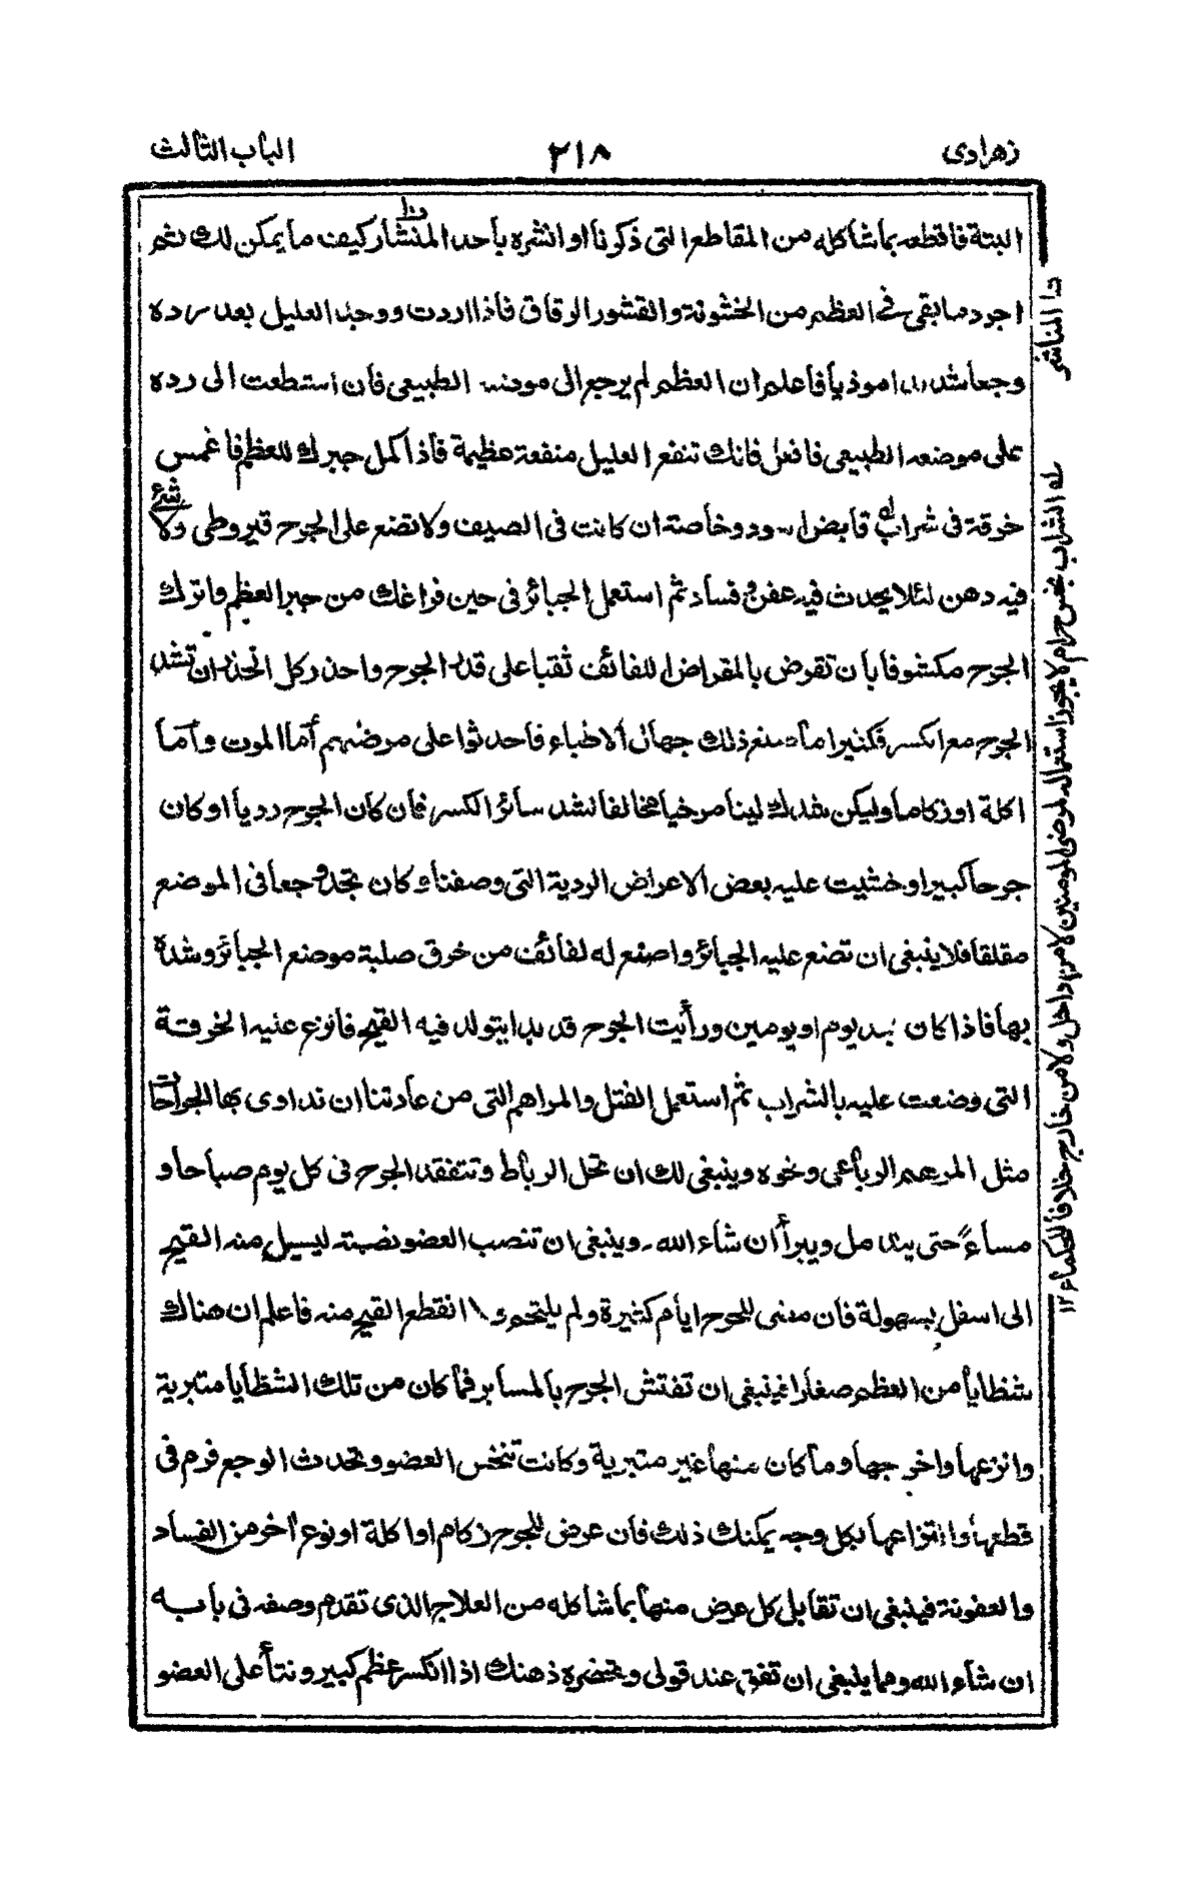 زهراوى ٢١٨ الباب الثالث
البتة فاقطعه بما شاكله من المقاطع التى ذكرنا او انشره باحد المنشار كيف ما يمكن لك ثم
اجرد ما بقى فى العظم من الخشونة والقشور الرقاق فاذا اردت ووجد العليل بعد رده
وجعا شديدا موذيا فاعلم ان العظم لم يرجع الى موضعه الطبيعى فان استطعت الى رده
على موضعه الطبيعى فافعل فانك تنفع العليل منفعة عظيمة فاذا كمل جبرك للعظم فاغمس
خرقة فى شراب قابض اسود وخاصة ان كانت فى الصيف ولا تضع على الجرح قيروطى ولا شئ
فيه دهن لئلا يحدث فيه عفن و فساد ثم استعمل الجبائر فى حين فراغك من جبر العظم واترك
الجرح مكشوفا بان تقرض بالمقراض اللفائف ثقبا على قدر الجرح واحذر كل الحذر ان تشد
الجرح مع الكسر فكثيرا ما صنع ذلك جهال الاطباء فاحدثوا على مرضهم أما الموت وأما
اكلة او زكاما وليكن شدك لينا مرخيا مخالفا لشد سائر الكسر فان كان الجرح رديا او كان
جرحا كبيرا وخشيت عليه بعض الاعراض الردية التى وصفنا و كان تجد وجعا فى الموضع
مقلقا فلا ينبغى ان تضع عليه الجبائر واصنع له لفائف من خرق صلبة موضع الجبائر وشده
بها فاذا كان بعد يوم او يومين ورأيت الجرح قد بدا يتولد فيه القيح فانزع عنه الخرقة
التى وضعت عليه بالشراب ثم استعمل الفتل والمراهم التى من عادتنا ان نداوى بها الجراحات
مثل المرهم الرباعى ونحوه وينبغى لك ان تحل الرباط وتتفقد الجرح فى كل يوم صباحا و
مساءً حتى يندمل ويبرأ ان شاء الله ۔ وينبغى ان تنصب العضو نصبة ليسيل منه القيح
الى اسفل بسهولة فان مضى للجرح ايام كثيرة ولم يلتحم و لا انقطع القيح منه فاعلم ان هناك
شظايا من العظم صغارا فينبغى ان تفتش الجرح بالمسابر فما كان من تلك الشظايا متبرية
وانزعها واخرجها وما كان منها غير متبرية وكانت تنخس العضو وتحدث الوجع فرم فى
قطعها وانتزاعها بكل وجه يمكنك ذلك فان عرض للجرح زكام او اكلة او نوع أخر من الفساد
والعفونة فينبغى ان تقابل كل عرض منها بما شاكله من العلاج الذى تقدم وصفه فى بابه
ان شاء الله ومما ينبغى ان تقف عند قولى وتحضره ذهنك اذا انكسر عظم كبير ونتأ على العضو
ن١ المناشر
له الشراب نجس حرام لا يجوز استعماله لمرضى المومنين لا من داخل ولا من خارج خلافا للحكماء ١٢